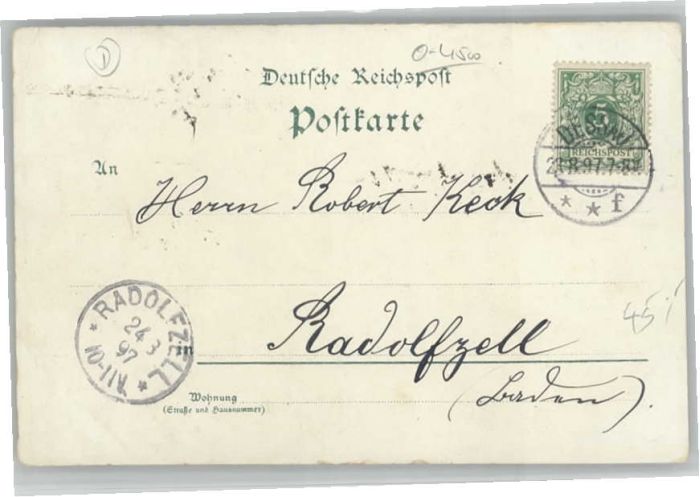 D
0-450
Deutsche Reichspost
Postkarte
5
REICHSPOST
DESSAU
97.7-8N
* * f
An
Herrn Robert Keck
RADOLFZELL
24 8
97
10-11V.
45.-
in Radolfzell
(Baden).
Wohnung
(Straße und Hausnummer)